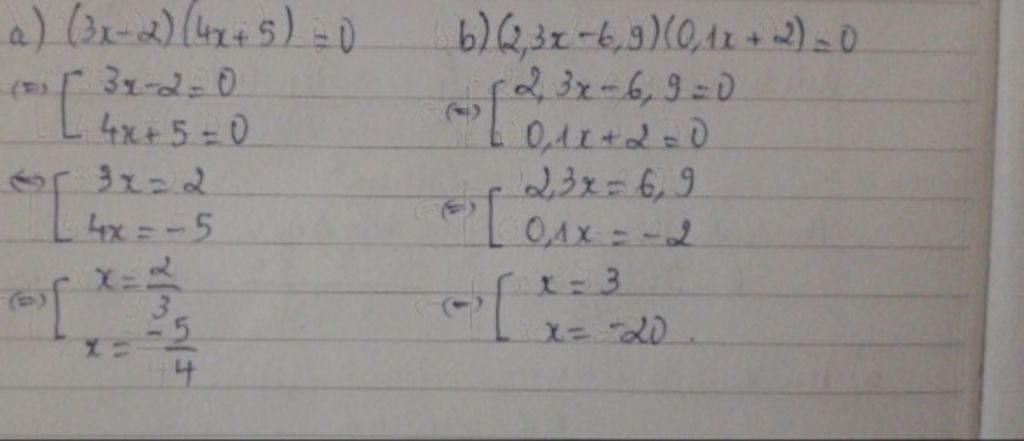 a) (3x-2)(4x+5) = 0
(=) [ 3x-2=0
4x+5=0
<=> [ 3x=2
4x=-5
(=) [ x=2/3
x=-5/4
b) (2,3x-6,9)(0,1x+2)=0
(=) [ 2,3x-6,9=0
0,1x+2=0
(=) [ 2,3x=6,9
0,1x=-2
(=) [ x=3
x=-20.